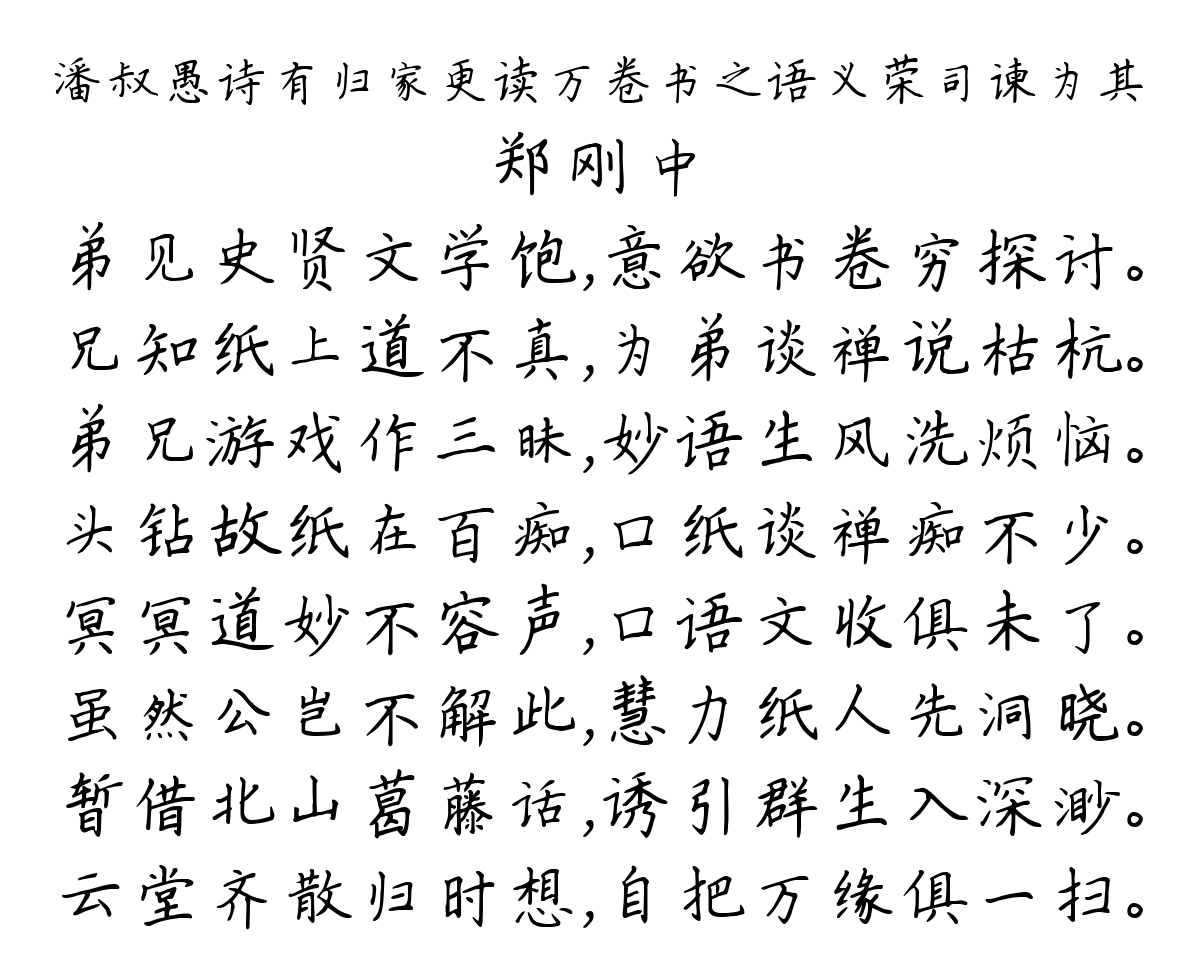 潘叔愚诗有归家更读万卷书之语义荣司谏为其
郑刚中
弟见史贤文学饱,意欲书卷穷探讨。
兄知纸上道不真,为弟谈禅说枯杭。
弟兄游戏作三昧,妙语生风洗烦恼。
头钻故纸在百痴,口纸谈禅痴不少。
冥冥道妙不容声,口语文收俱未了。
虽然公岂不解此,慧力纸人先洞晓。
暂借北山葛藤话,诱引群生入深渺。
云堂齐散归时想,自把万缘俱一扫。